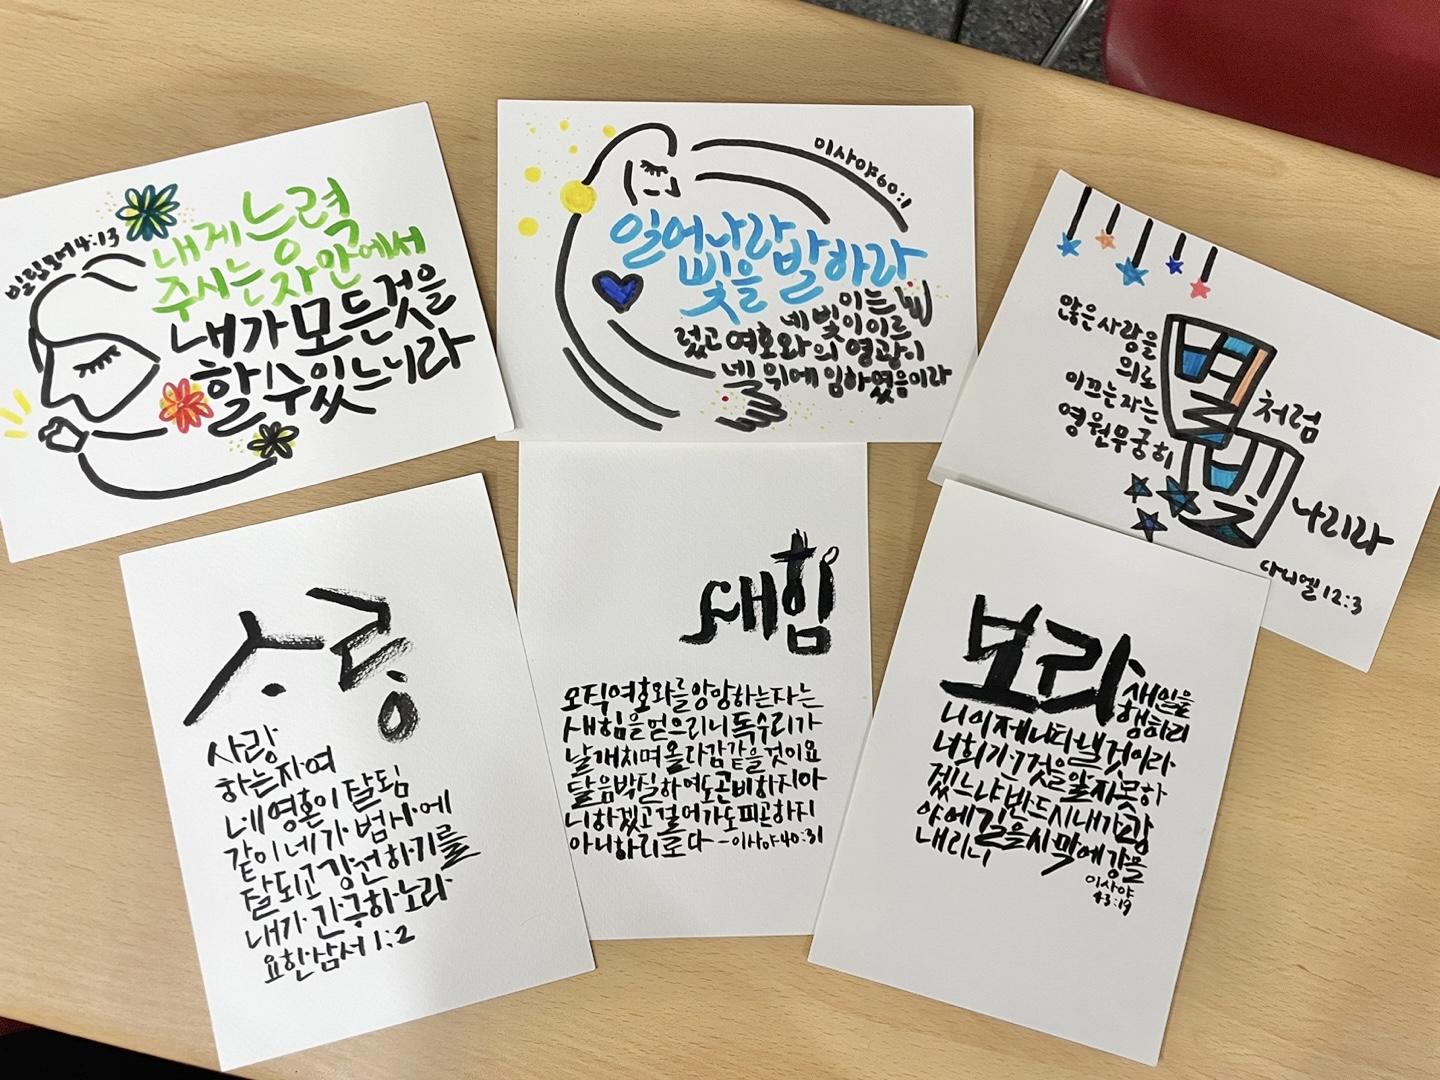 빌립보서 4:13
내게 능력
주시는 자 안에서
내가 모든 것을
할 수 있느니라
이사야 60:1
일어나라
빛을 발하라
이는
네 빛이 이르
렀고 여호와의 영광이
네 위에 임하였음이라
많은 사람을
의로
이끄는 자는
영원무궁히
별처럼
빛나리라
다니엘 12:3
사랑
사랑
하는 자여
네 영혼이 잘됨
같이 네가 범사에
잘되고 강건하기를
내가 간구하노라
요한삼서 1:2
새힘
오직 여호와를 앙망하는 자는
새 힘을 얻으리니 독수리가
날개치며 올라감 같을 것이요
달음박질하여도 곤비하지 아
니하겠고 걸어가도 피곤하지
아니하리로다 -이사야 40:31
보라
새 일을
행하리
니 이제 나타낼 것이라
너희가 그것을 알지 못하
겠느냐 반드시 내가 광
야에 길을 사막에 강을
내리니
이사야
43:19